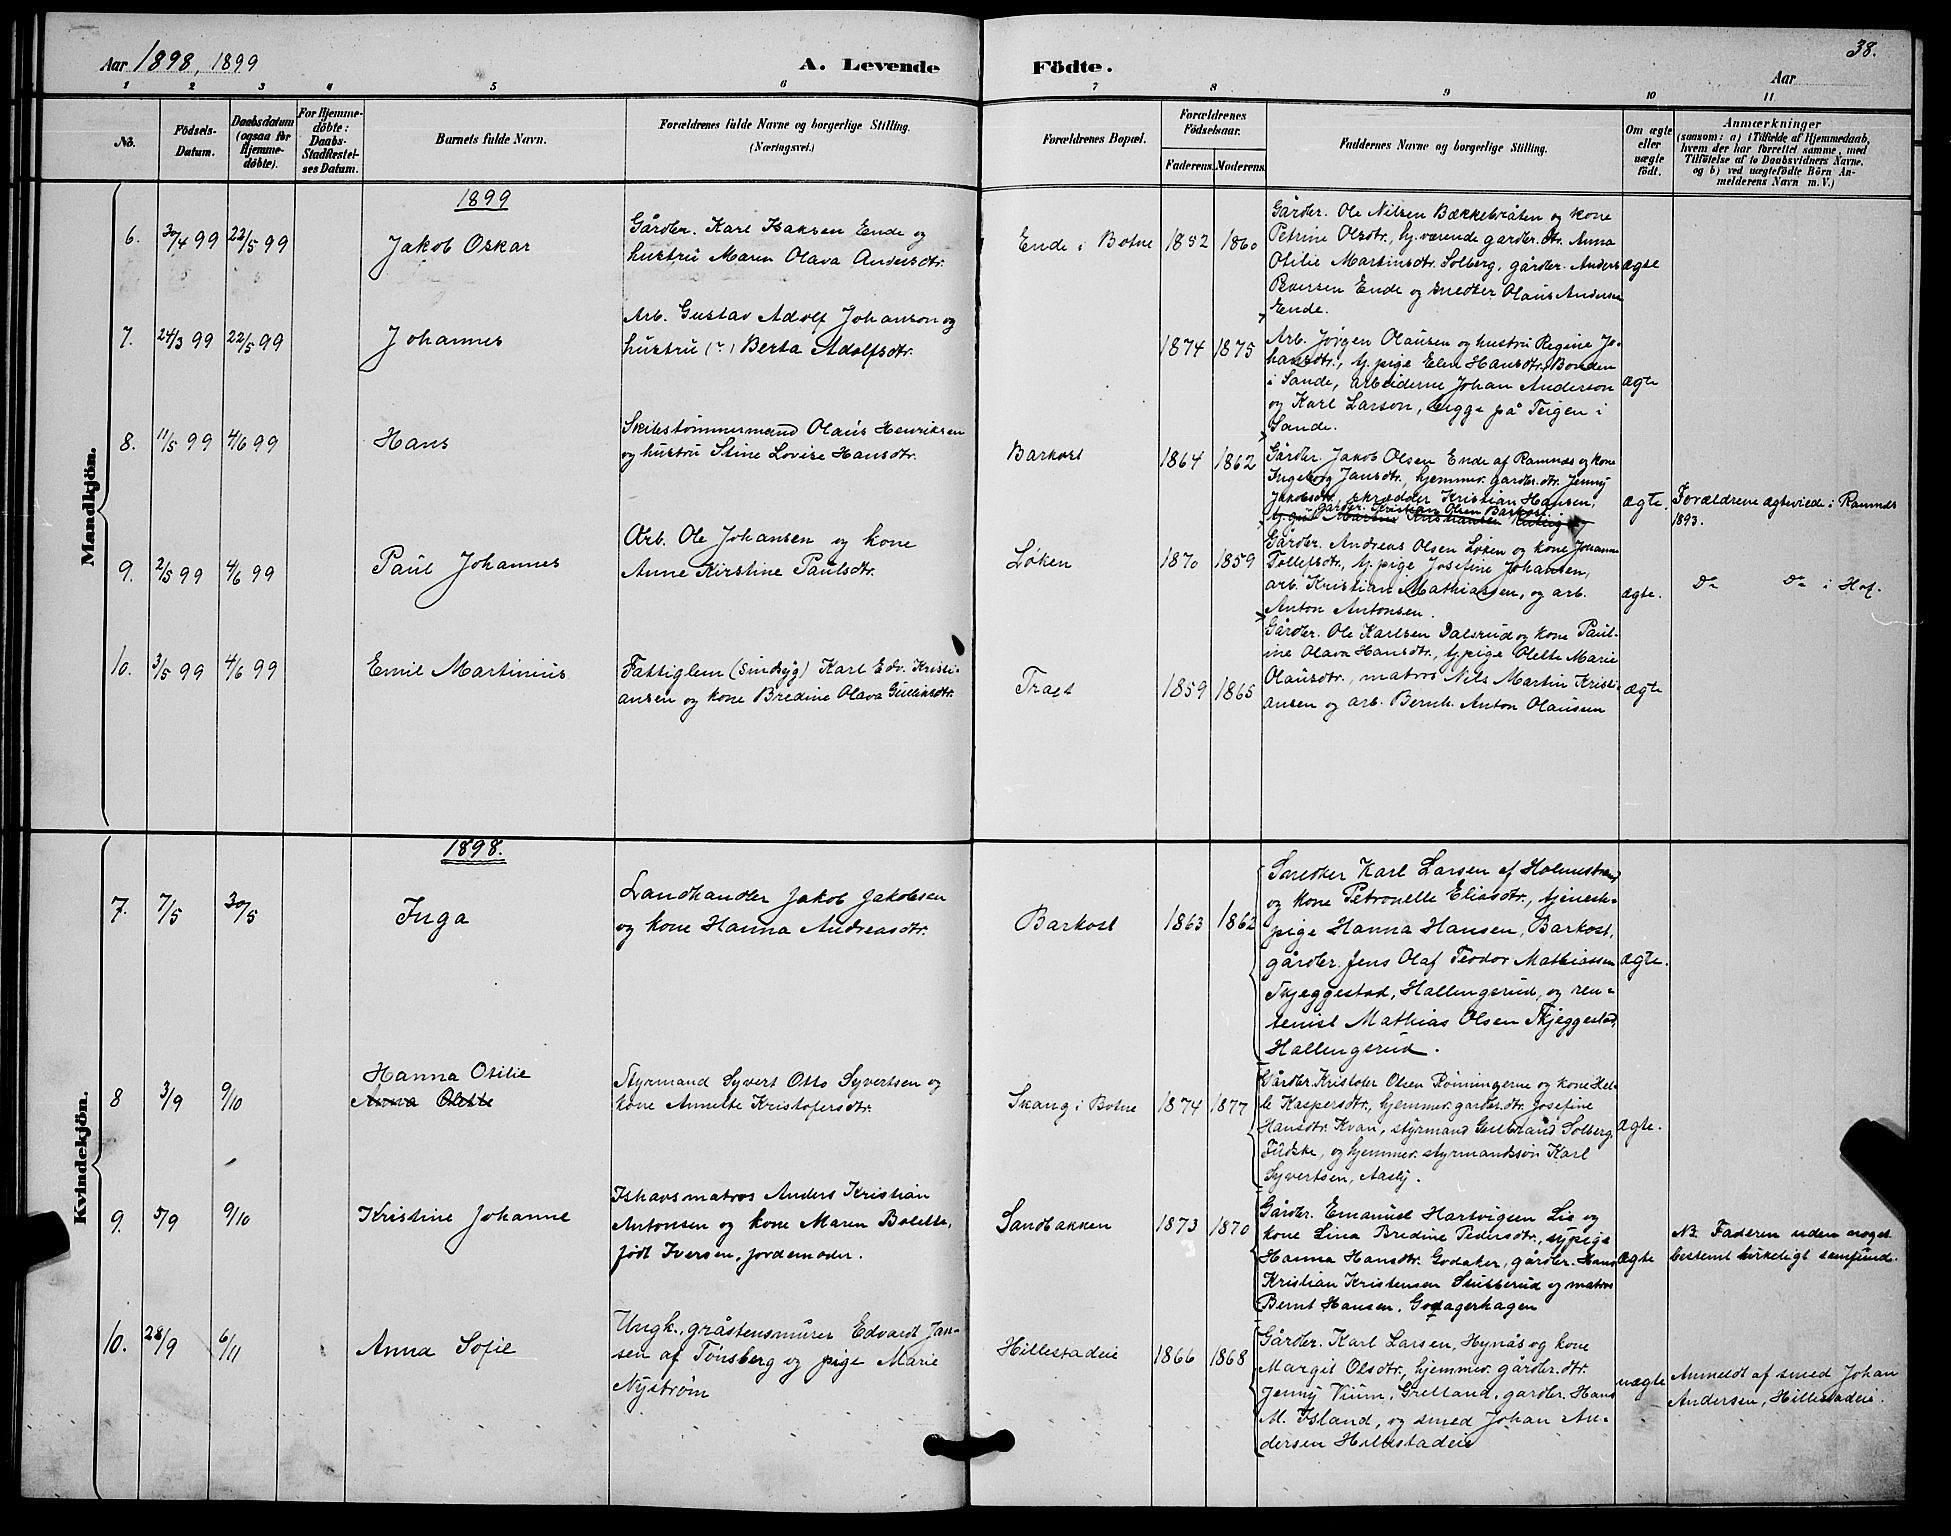 Aar 1898, 1899
A. Levende Födte.
38.
Aar
1 2 3 4 5 6 7 8 9 10 11
No.
Födsels-
Datum.
Daabsdatum
(ogsaa for
Hjemme-
döbte).
For Hjemme-
döbte:
Daabs-
Stadfæstel-
ses Datum.
Barnets fulde Navn.
Forældrenes fulde Navne og borgerlige Stilling.
(Næringsvei.)
Forældrenes Bopæl.
Forældrenes
Födselsaar.
Faderens. Moderens.
Faddernes Navne og borgerlige Stilling.
Om ægte
eller
uægte
födt.
Anmærkninger
(saasom: a) i Tilfælde af Hjemmedaab,
hvem der har forrettet samme, med
Tilføielse af to Daabsvidners Navne,
og b) ved uægtefödte Börn An-
melderens Navn m. V.)
Mandkjön.
1899
6. 30/4 99 22/5 99
Jakob Oskar
Gårdbr. Karl Isaksen Ende og
hustru Maren Olava Andersdtr.
Ende i Botne 1852 1860
Gårdbr. Ole Nilsen Bækkebråten og kone
Petrine Olsdtr., hj.værende gårdbr. dtr. Anna
Otilie Martinsdtr. Solberg, gårdbr. Anders
Ende og snedker Olaus Andersen
Ende.
ægte
7. 24/3 99 22/5 99
Johannes
Arb. Gustav Adolf Johanson og
hustru (?) Berta Adolfsdtr.
1874 1875
Arb. Jørgen Olausen og hustru Regine Jo-
hansdtr., tj. pige Elen Hansdtr. Bonden
i Sande, arbeiderne Johan Anderson
og Karl Larson, begge på Teigen i
Sande.
ægte
8. 11/5 99 4/6 99
Hans
Skibstømmermand Olaus Henriksen
og hustru Stine Lovise Hansdtr.
Barkost 1864 1862
Gårdbr. Jakob Olsen Ende af Ramnæs og kone
Ingeborg Jansdtr., hjemmev. gårdbr. dtr. Jenny
Jakobsdtr., skrædder Kristian Hansen,
gårdbr. Kristian Olsen Barkost.
ægte.
Forældrene ægteviede i Ramnæs
1893.
9. 2/5 99 4/6 99
Paul Johannes
Arb. Ole Johansen og kone
Anne Kirstine Paulsdtr.
Løken 1870 1859
Gårdbr. Andreas Olsen Løken og kone Johanne
Tollefsdtr., tj. pige Josefine Johansen,
arb. Kristian Mathiassen, og arb.
Anton Antonsen.
ægte.
Do Do i Hof.
10. 3/5 99 4/6 99
Emil Martinius
Fattiglem (sindsyg) Karl Edv. Kristi-
ansen og kone Bredine Olava Gulliksdtr.
1859 1865
Gårdbr. Ole Karlsen Dalsrud og kone Paul-
ine Olava Hansdtr., tj. pige Olette Marie
Olausdtr., matros Nils Martin Kristi-
ansen og arb. Bernh. Anton Olausen
ægte
Kvindekjön.
1898.
7. 7/5 30/5
Inga
Landhandler Jakob Jakobsen
og kone Hanna Andreasdtr.
Barkost 1863 1862
Snedker Karl Larsen af Holmestrand
og kone Petronelle Eliasdtr., tjeneste-
pige Hanna Hansen, Barkost,
gårdbr. Jens Olaf Teodor Mathiassen
Skjeggestad, Hallingsrud, og ren-
tenist Mathias Olsen Skjeggestad,
Hallingsrud.
ægte.
8 3/9 9/10
Hanna Otilie
Anna Olette
Styrmand Syvert Otto Syvertsen og
kone Annette Kristofersdtr.
Skang i Botne 1874 1877
Gårdbr. Kristofer Olsen Rønningerne og kone Hel-
le Kaspersdtr., hjemmev. gårdbr. dtr. Josefine
Hansdtr. Kvan, styrmand Gulbrand Solberg,
og hjemmev. styrmandssøn Karl
Syvertsen, Aasly.
ægte.
9. 5/9 9/10
Kristine Johanne
Ishavsmatros Anders Kristian
Antonsen og kone Maren Bolette,
født Iversen, jordemoder.
Sandbakken 1873 1870
Gårdbr. Emanuel Hartvigsen Lie og
kone Lina Bredine Pedersdtr., sypige
Hanna Hansdtr. Godaker, gårdbr. Hans
Kristian Kristensen Stubberud og matros
Bernt Hansen, Godagerhagen
ægte
NB. Faderen uden noget
bestemt kirkeligt samfund.
10. 28/9 6/11
Anna Sofie
Ungk., gråstensmurer Edvardt Jan-
sen af Tønsberg og pige Marie
Nystrøm
Hillestadeie 1866 1868
Gårdbr. Karl Larsen, Hynås og kone
Margit Olsdtr., hjemmev. gårdbr. dtr.
Jenny Vium, Grelland, gårdbr. Hans
M. Island, og smed Johan An-
dersen Hillestadeie
uægte
Anmeldt af smed Johan
Andersen, Hillestadeie.